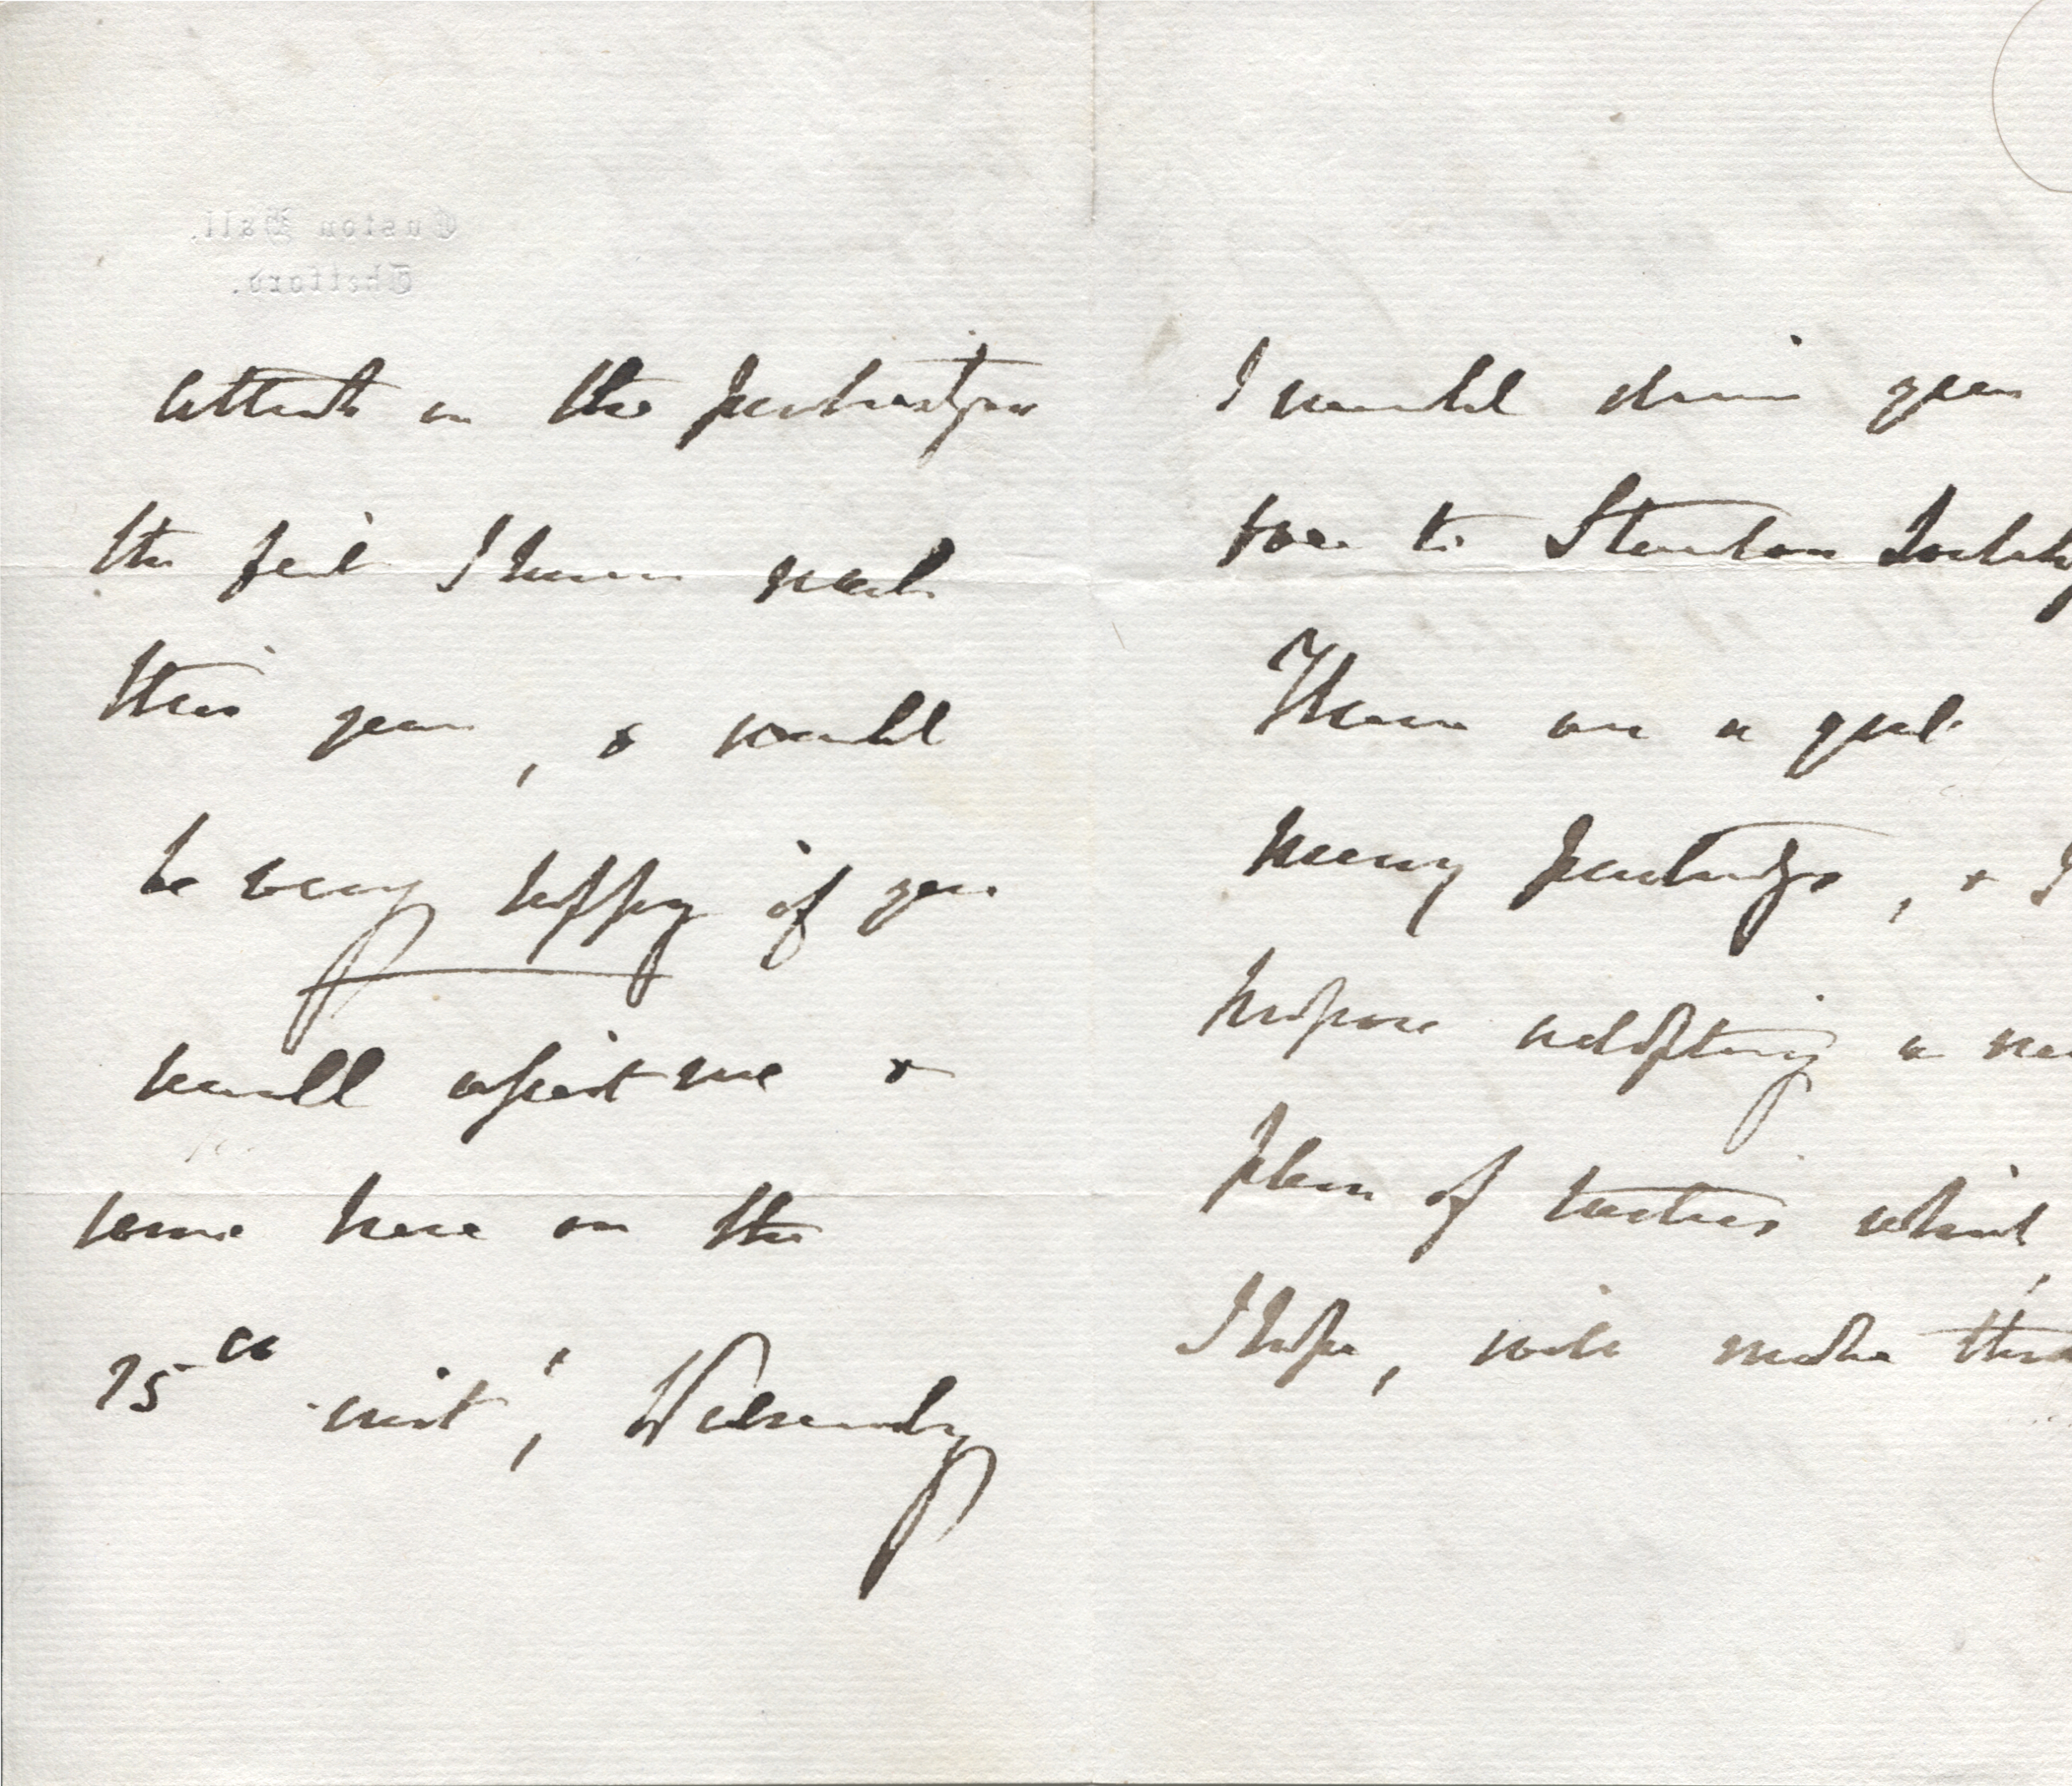 Euston Hall,
Thetford.
attack on the partridges
the first I have made
this year, & would
be very happy if you
would assist me &
come here on the
25th inst', Wednesday
I would drive you
over to Stanton
There are a good
many partridges, & I
propose adopting a new
plan of tactics which,
I hope, will make